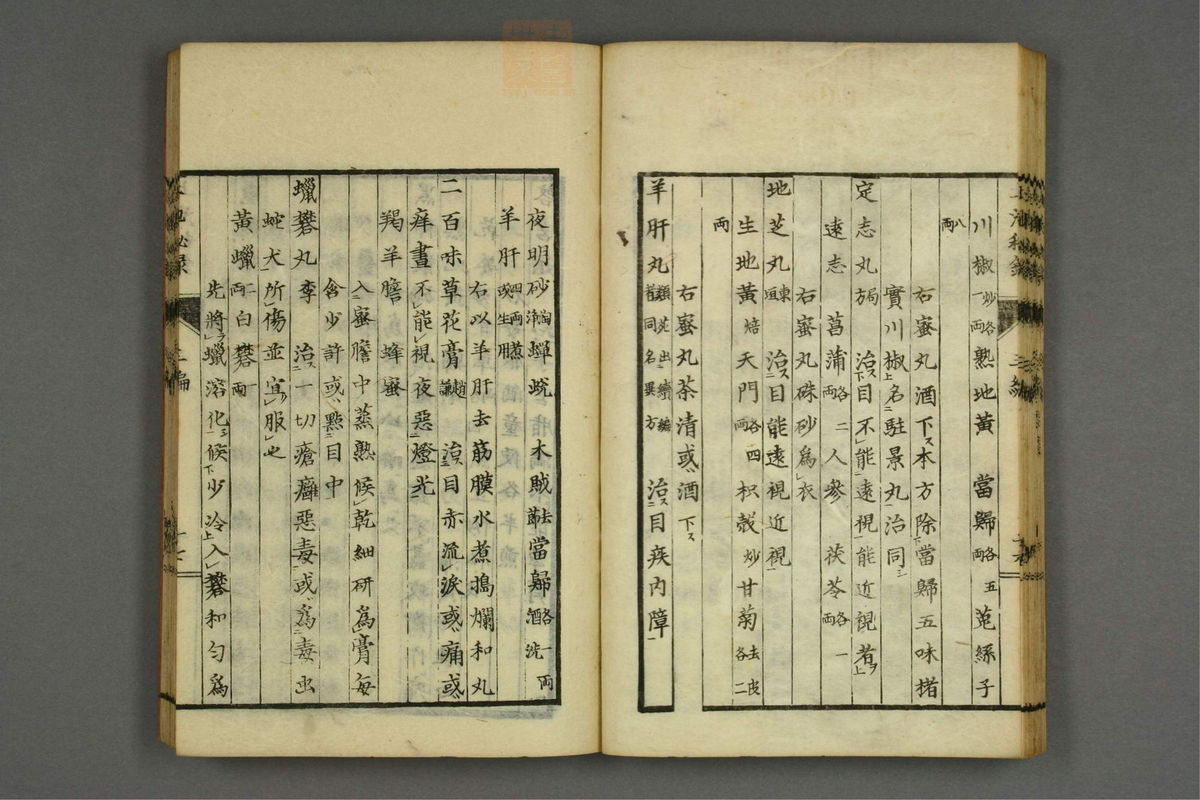 川椒一両炒熟地黄 當歸各五両菟絲子
八両
右蜜丸酒下ス本方除當歸五味楮
實川椒名駐景丸治同シ
定志丸局方 治ス目不能遠視能近視者ヲ
遠志 菖蒲各二両人參 茯苓各一両
右蜜丸硃砂爲衣
地芝丸東垣 治ス目能遠視近視
生地黄焙天門各四両枳殻炒甘菊去皮各二
両
右蜜丸茶清或酒下ス
羊肝丸 治ス目疾内障
夜明砂淘浄蟬蛻 木賊去節當歸各一両酒洗
羊肝四両蒸或生用
右以羊肝去筋膜水煮搗爛和丸
二百味草花膏趙謙 治ス目赤流涙或痛或
痒晝不能視夜惡燈光
羯羊膽 蜂蜜
入蜜膽中蒸熟候乾細研爲膏每
含少許或點目中
蠟礬丸李 治ス一切瘡癰惡毒或爲毒虫
蛇犬所傷並宜服也
黄蠟二両白礬一両
先將蠟溶化シ候少冷入礬和匀爲